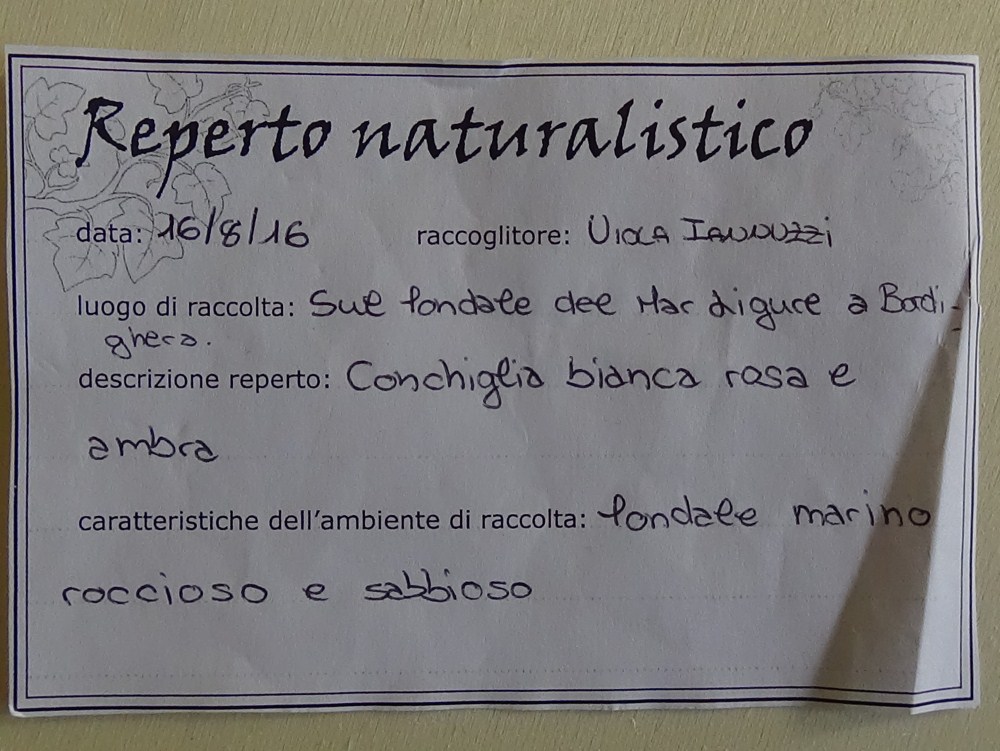 Reperto naturalistico
data: 16/8/16 raccoglitore: Viola Iannuzzi
luogo di raccolta: Sul fondale del Mar Ligure a Bordi-
ghera.
descrizione reperto: Conchiglia bianca rosa e
ambra
caratteristiche dell'ambiente di raccolta: fondale marino
roccioso e sabbioso